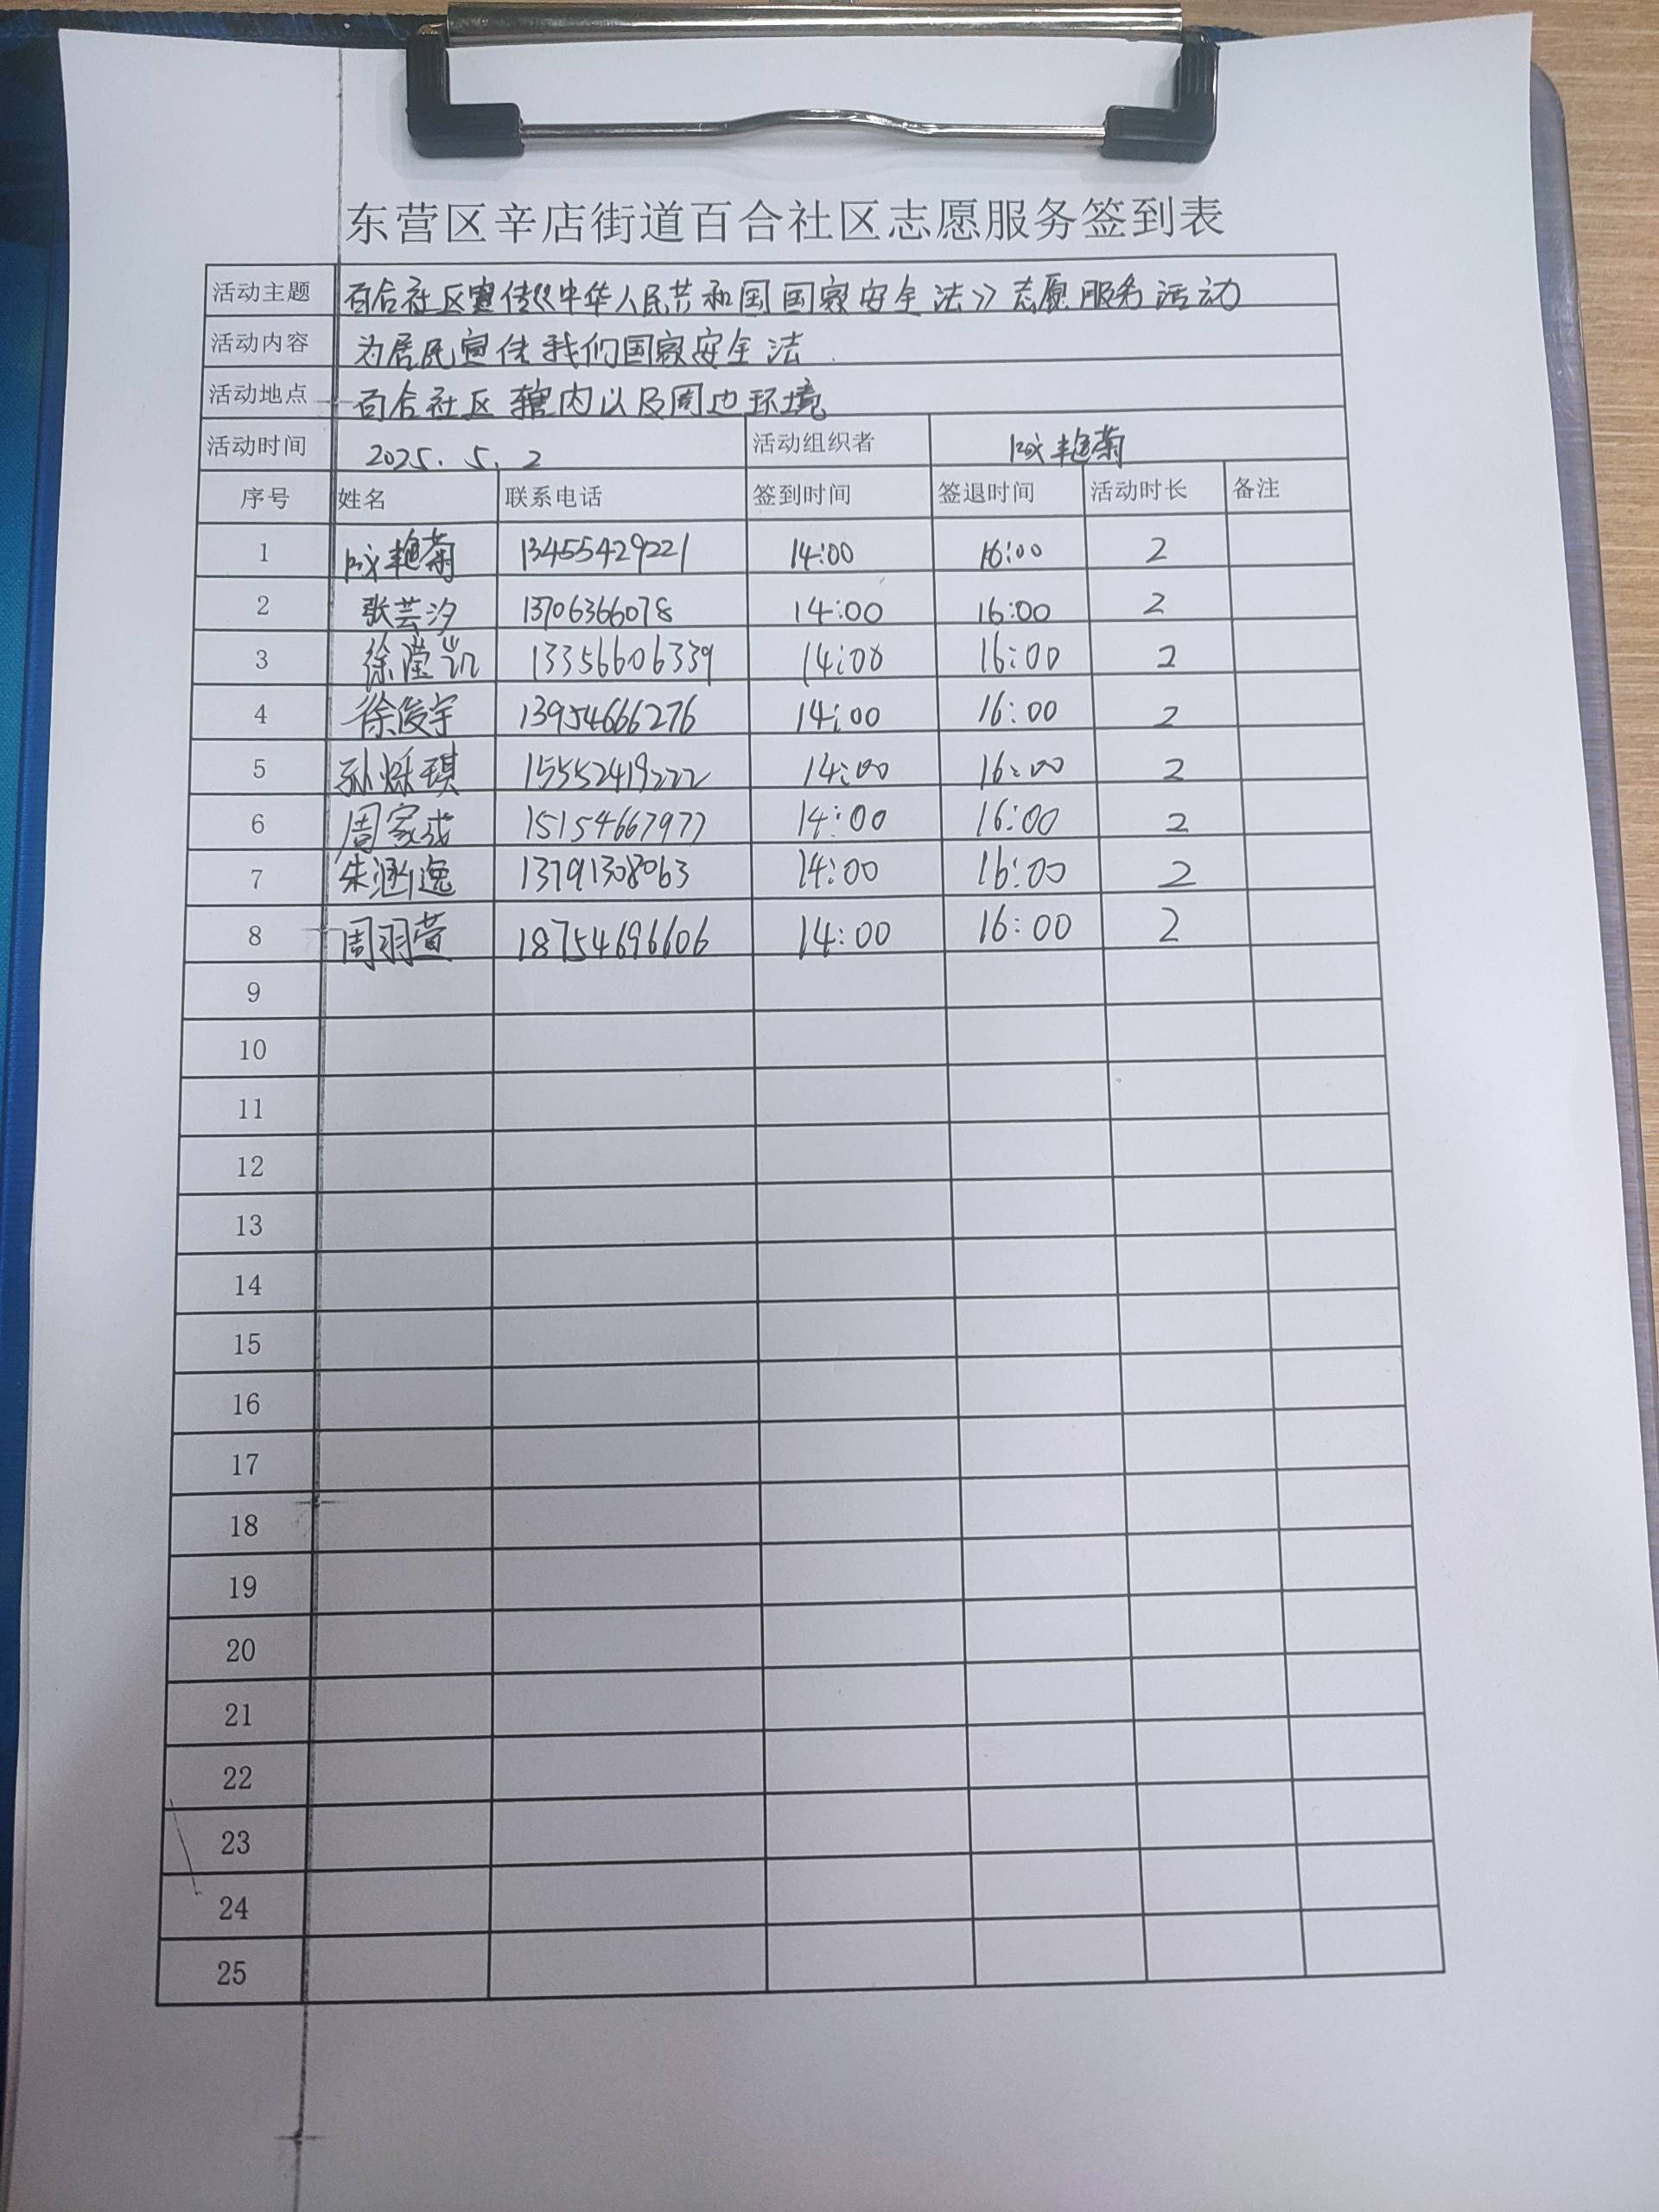 东营区辛店街道百合社区志愿服务签到表
活动主题 百合社区宣传《中华人民共和国国家安全法》志愿服务活动
活动内容 为居民宣传我们国家安全法.
活动地点 百合社区辖内以及周边环境
活动时间 2025.5.2 活动组织者 艳菊
序号 姓名 联系电话 签到时间 签退时间 活动时长 备注
1 艳菊 13455429221 14:00 16:00 2
2 张芸汐 13706366078 14:00 16:00 2
3 徐滢凯 13356606339 14:00 16:00 2
4 徐俊宇 13954666276 14:00 16:00 2
5 孙烁琪 15552419222 14:00 16:00 2
6 周家成 15154667977 14:00 16:00 2
7 朱涵逸 13791308063 14:00 16:00 2
8 周羽萱 18754696606 14:00 16:00 2
9
10
11
12
13
14
15
16
17
18
19
20
21
22
23
24
25